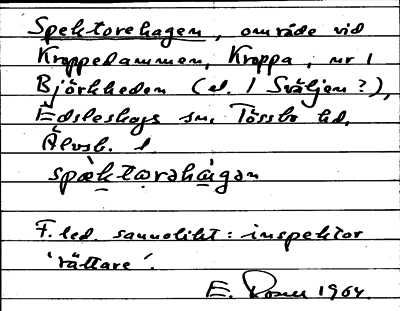 Spektorehagen, område vid
Kroppedammen, Kroppa, nr 1
Björkheden (el. 1 Sväljen?),
Ödsleskogs sn, Tössbo hd,
Älvsb. l
spæ̀ktorahàgan
F. led. sannolikt: inspektor
'rättare'.
E. 1964.